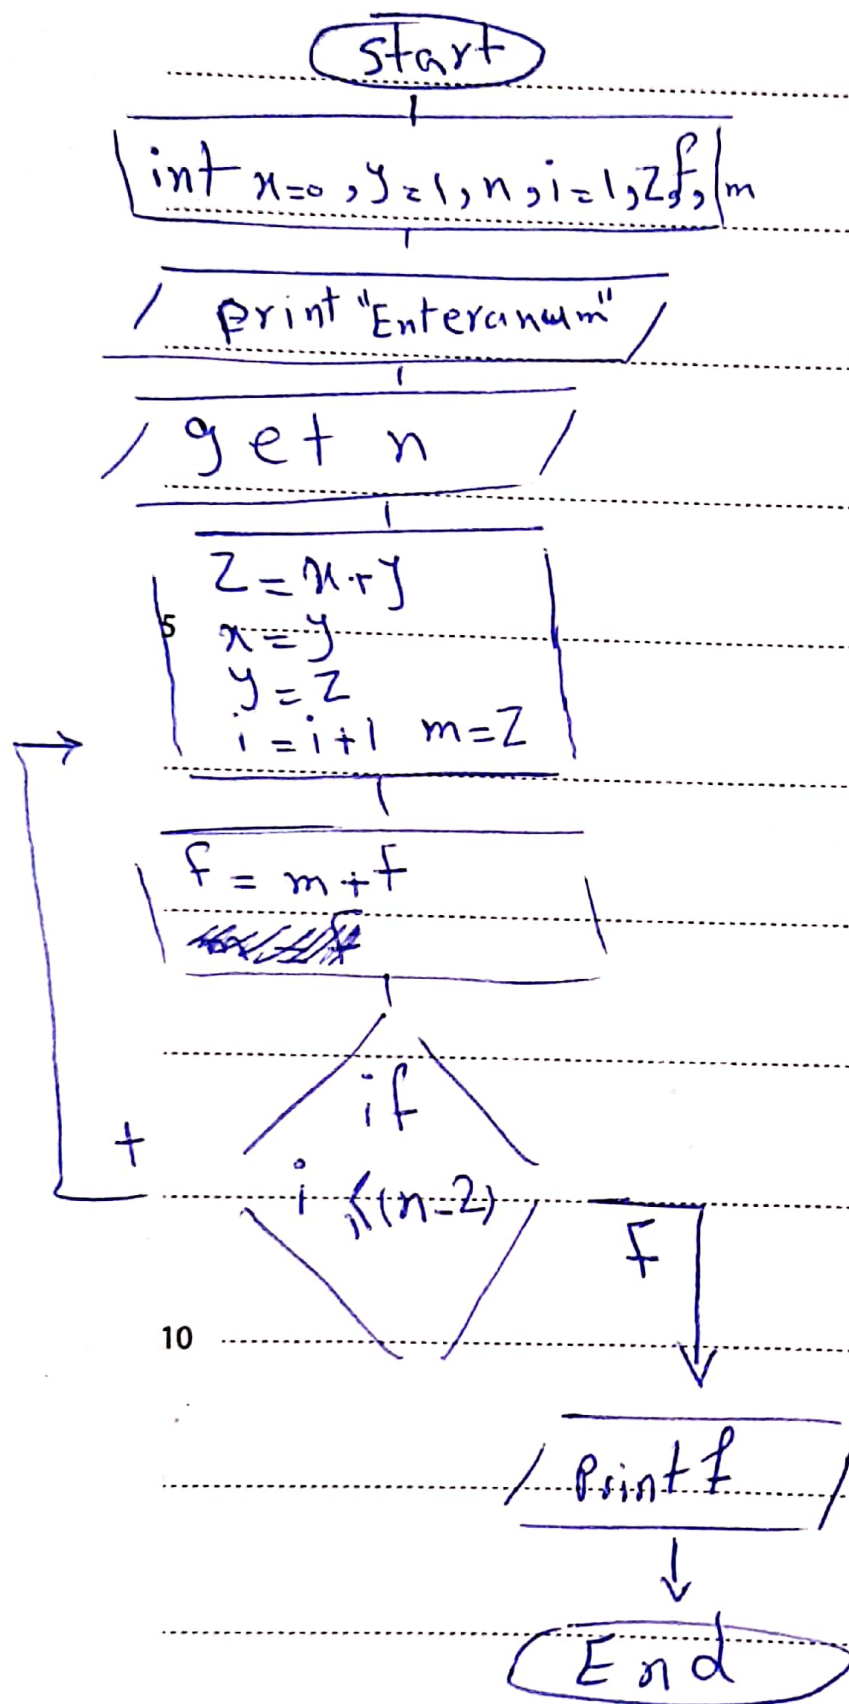 start
int x=0, y=1, n, i=1, z, f, m
print "Enter a num"
get n
z = x+y
5
x = y
y = z
i = i+1 m=z
f = m+f
if
+
i ≤ (n-2)
F
10
Print f
End